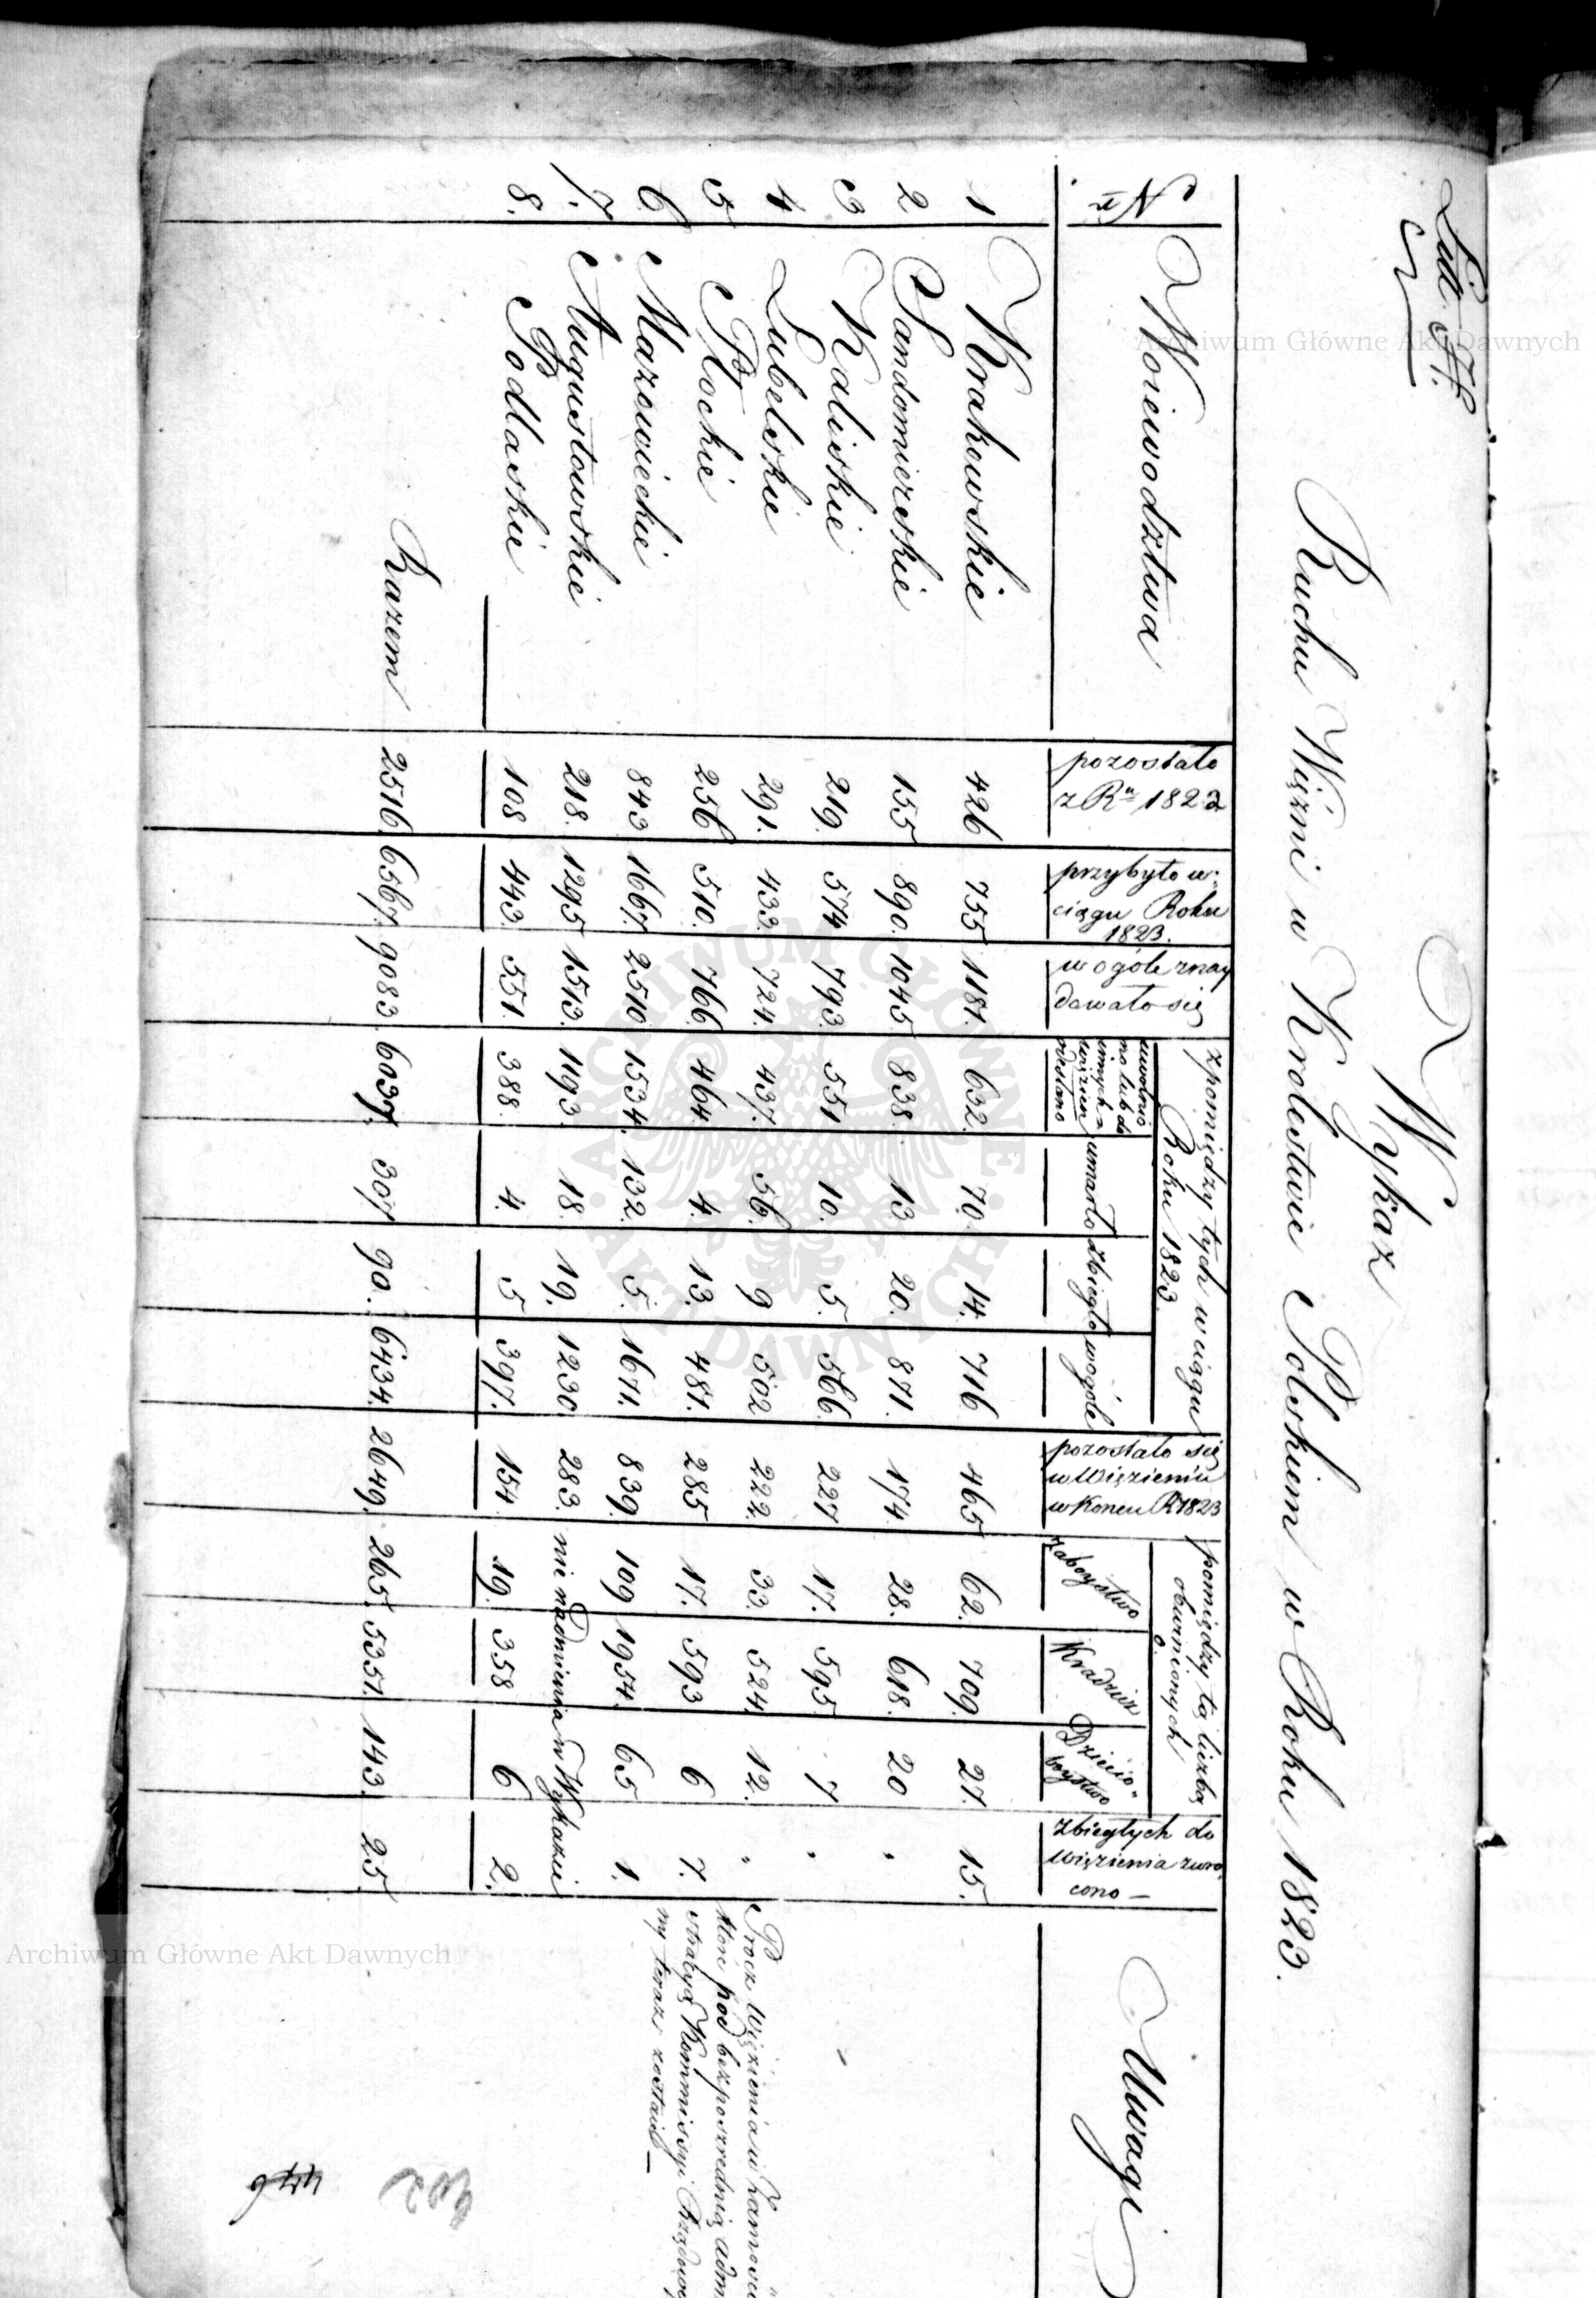 Litt. H.
Wykaz
Ruchu Więźni w Krolestwie Polskiem w Roku 1823.
Nr
Woiewodztwa
pozostało z Ru 1822
przybyło w ciągu Roku 1823.
w ogóle znaydowało się
z pomiędzy tych w ciągu Roku 1823.
uwolniono lub do innych więzień odesłano
umarło
zbiegło
wogóle
pozostało się w Więzieniu w Koncu R 1823
pomiędzy tą liczbą obwinionych o
zaboystwo
Kradzież
Dziecioboystwo
zbiegłych do więzienia zwrocono —
Uwagi
1 Krakowskie 426 755 1181. 632. 70. 14. 716 465 62. 709. 27. 15.
2 Sandomierskie 155 890. 1045 838. 13 20. 871. 174. 28. 618. 20 "
3 Kaliskie 219. 574 793. 551 10. 5. 566. 227 17. 595. 7 "
4 Lubelskie 291. 433. 724. 437. 56. 9 502 222. 33. 524. 12. "
5 Płockie 256 510. 766. 464. 4. 13. 481. 285 17. 593 6 7.
6 Mazowieckie 843 1667. 2510. 1534. 132. 5. 1671. 839. 109 1954. 65 1.
7. Augustowskie 218. 1295 1513. 1193. 18. 19. 1230. 283. nie nadmienia w Wykazie
8. Podlaskie 108 443. 551. 388. 4. 5 397. 154. 19. 358 6 2.
Razem 2516. 6567. 9083. 6037. 307 90. 6434. 2649. 265. 5351. 143. 25.
Procz Więzienia w Zamościu
które pod bezpośrednią adm
stracyą Kommissyi Rządowey
teraz zostaie —
402
446
Archiwum Główne Akt Dawnych
Archiwum Główne Akt Dawnych
ARCHIWUM GŁÓWNE AKT DAWNYCH